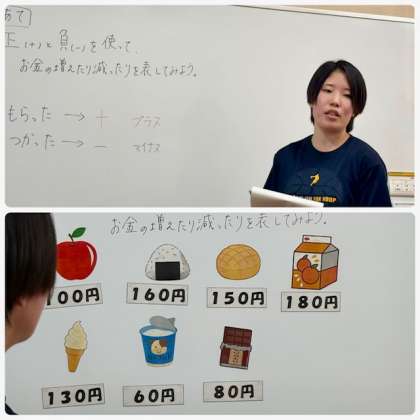 めあて
正(+)と負(-)を使って、
お金の増えたり減ったりを表してみよう。
もらった → + プラス
つかった → − マイナス
お金の増えたり減ったりを表してみよう。
100円 160円 150円 180円
130円 60円 80円